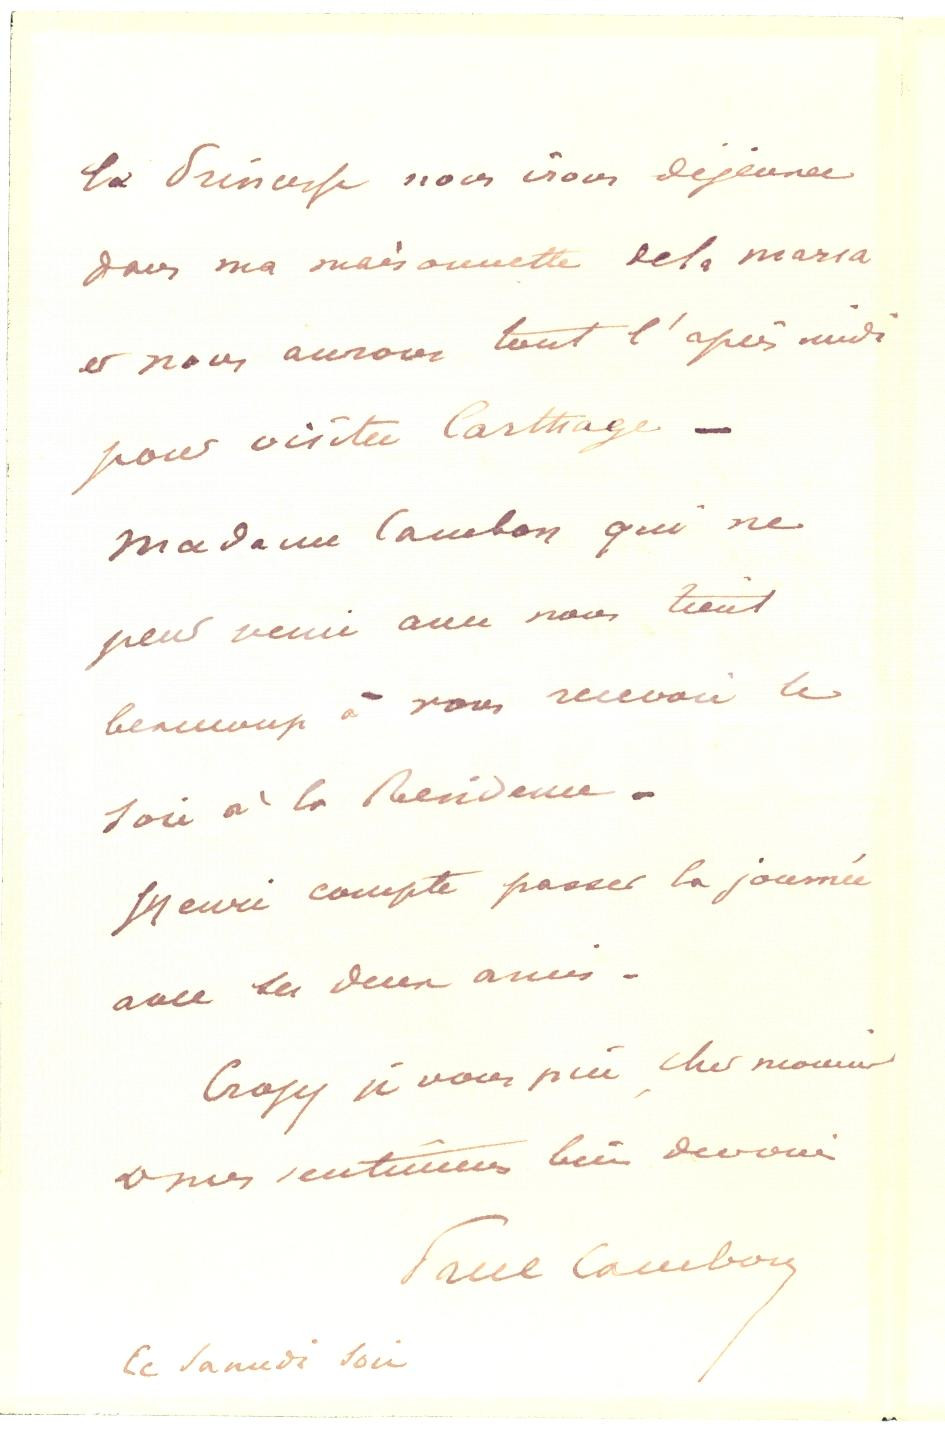 la Princesse nous irons déjeuner
dans ma maisonnette de la marsa
et nous aurons tout l'après midi
pour visiter Carthage —
Madame Cambon qui ne
peut venir avec nous tient
beaucoup à vous recevoir le
soir à la Résidence —
Henri compte passer la journée
avec ses deux amis -
Croyez je vous prie, cher monsieur
à mes sentimens bien dévoués
Paul Cambon
Ce Samedi soir